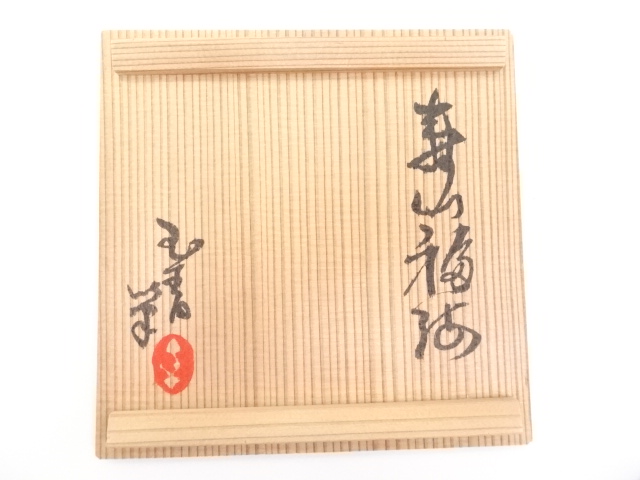 寿山福海
玉青
筆